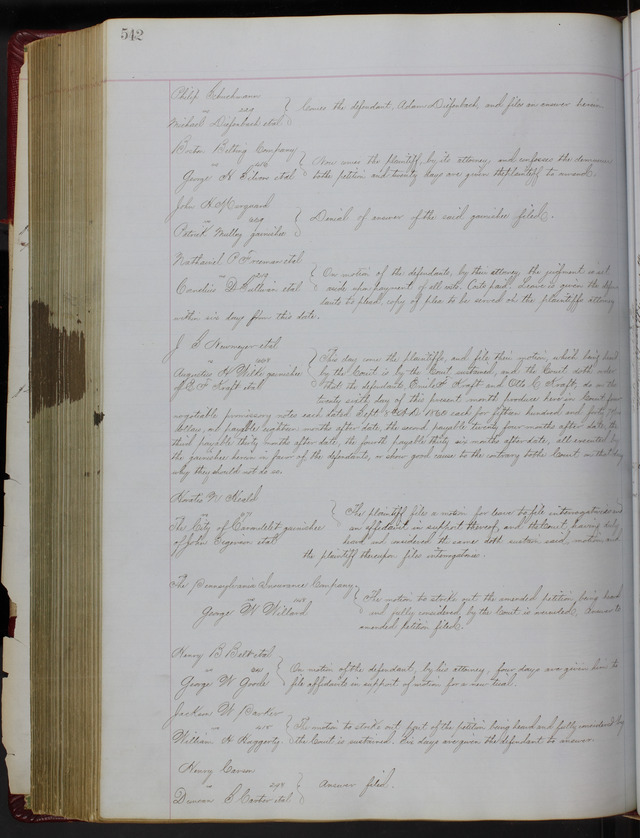 542
Philip Schuchmann
vs 229 Comes the defendant, Adam Diefenbach and files an answer herein.
Michael Diefenbach etal
Boston Belting Company
vs Now comes the plaintiff, by its attorney, and confesses the demurrer
George H. etal to the petition and twenty days are given the plaintiff to amend.
John H.
vs 229 Denial of answer of the said garnishee filed.
Patrick Mulloy garnishee
Nathaniel P. Freeman etal
vs 219 On motion of the defendants, by their attorney, the judgment is set
Cornelius D. Sullivan etal aside upon payment of all costs. Costs paid. Leave is given the defen-
dants to plead, copy of plea to be served on the plaintiffs attorney
within six days from this date.
J. S. Newmeyer etal
vs This day come the plaintiffs, and file their motion, which being heard
Augustus H. garnishee by the Court is by the Court sustained, and the Court doth order
of E F Kraft etal that the defendants Emile F Kraft and Otto C Kraft, do on the
twenty sixth day of this present month produce here in Court four
negotiable promissory notes each dated Sept 3d A.D. 1860 each for fifteen hundred and forty
dollars, one payable eighteen months after date, the second payable twenty four months after date, the
third payable thirty months after date, the fourth payable thirty six months after date, all executed by
the garnishee herein in favor of the defendants, or show good cause to the contrary to the Court on that day
why they should not do so.
vs The plaintiff file a motion for leave to file interrogatories and
The City of Carondelet garnishee an affidavit in support thereof, and the Court having duly
of John etal heard and considered the same doth sustain said motion and
the plaintiff thereupon files interrogatories.
The Pennsylvania Insurance Company
vs The motion to strike out the amended petition being heard
George W Willard and fully considered by the Court is Answer to
amended petition filed.
Henry B Belt etal
vs On motion of the defendant, by his attorney, four days are given him to
George W Goode file affidavits in support of motion for a new trial.
Jackson W Barker
vs The motion to strike out part of the petition being heard and fully considered by
William H Haggerty the Court is sustained. Six days are given the defendant to answer.
Henry
vs 298 Answer filed.
Duncan S Carter etal